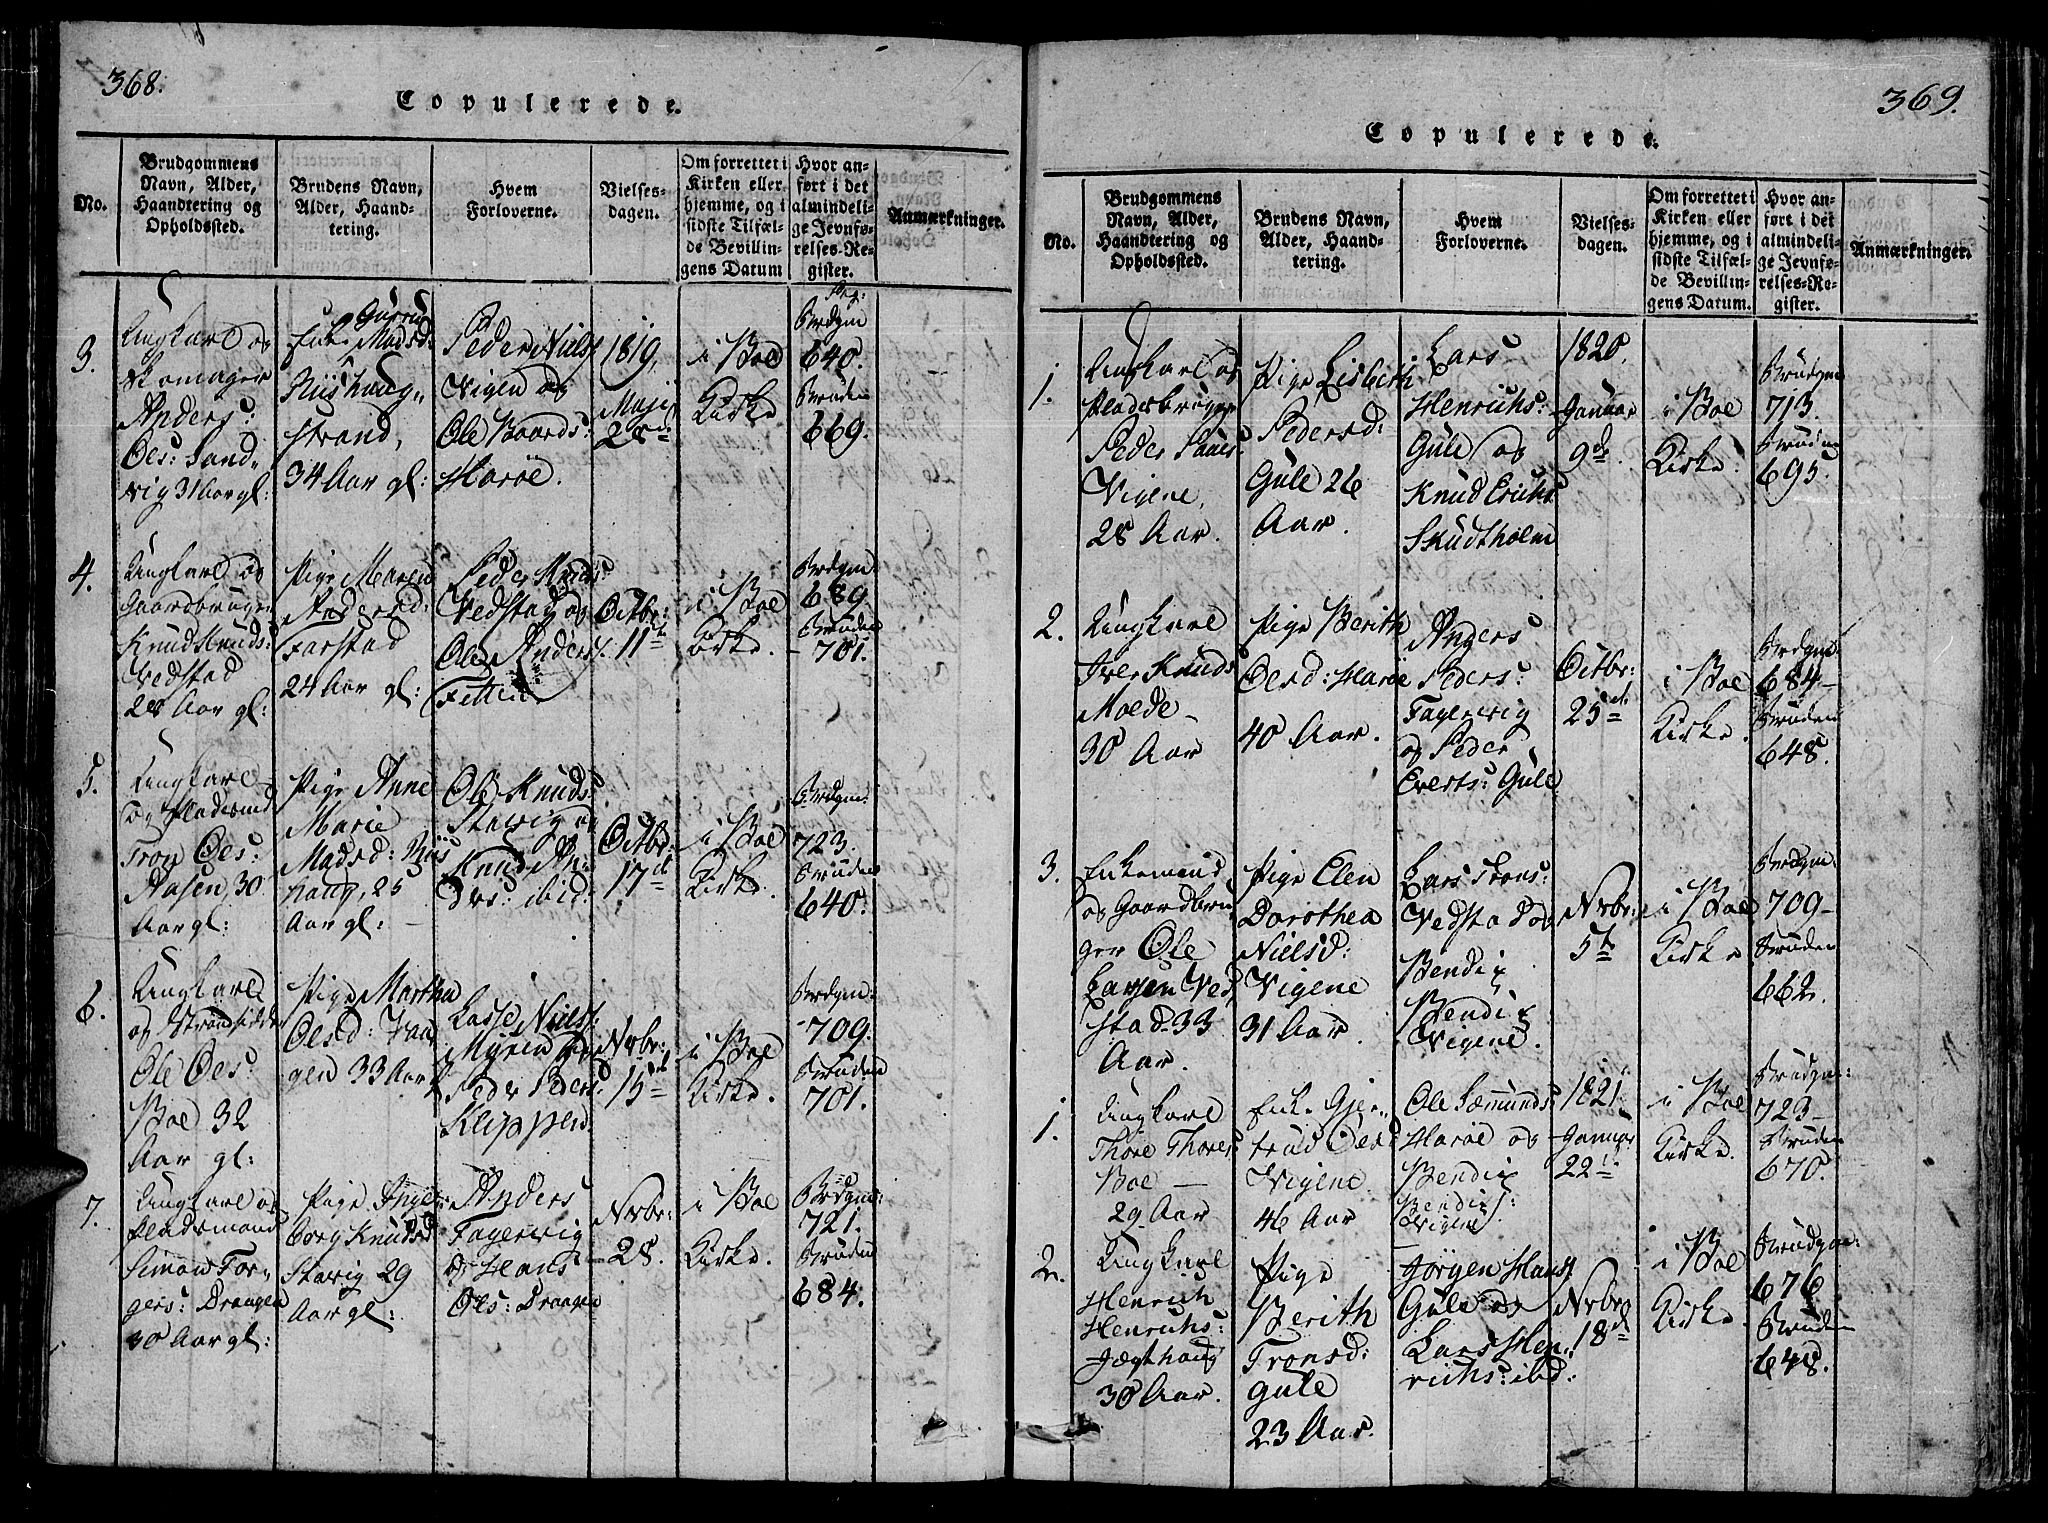 368.
Copulerede.
No.
Brudgommens Navn, Alder, Haandtering og Opholdssted.
Brudens Navn, Alder, Haandtering.
Hvem Forloverne.
Vielsesdagen.
Om forrettet i Kirken eller hjemme, og i sidste Tilfælde Bevillingens Datum
Hvor anført i det almindelige Jevnførelses-Register.
Anmærkninger.
3.
Ungkarl og
Skomager
Anders
Oes: Sand-
vig 31 Aar gl:
Enke Gurru
Madsd:
Riishaug-
strand,
34 Aar gl:
Peder Niels.
Vigen og
Ole Baards:
Harøe.
1819,
Maji
28de
i Boe
Kirke
Brdgm
640.
Bruden
669.
4.
Ungkarl og
Gaardbruger
Knud Knuds:
Vedstad
28 Aar gl:
Pige Maren
Andersd:
Farstad
24 Aar gl:
Peder Knuds:
Vedstad og
Ole Anders.
Octbr:
11te
i Boe
Kirke.
Brdgm
689
Bruden
701.
5.
Ungkarl
og Pladsmd
Tron Oes:
Aasen, 30
Aar gl:
Pige Anne
Marie
Madsd: Riis
haug, 25
Aar gl:
Ole Knuds:
Stavig og
Knud An-
drs: ibid:
Octbr:
17de
i Boe
Kirke.
Brdgm:
723.
Bruden
640.
6.
Ungkarl
og Strandsidder
Ole Oes:
Boe 32
Aar gl:
Pige Martha
Oesd: Vaa
gen 33 Aar
Lasse Niels.
Myren og
Peder Peders:
Klippen.
Nvbr:
15de
i Boe
Kirke.
Brdgm:
709.
Bruden
701.
7.
Ungkarl og
Pladsmand
Simon Tor-
gers: Draagen
30 Aar gl:
Pige Inge-
borg Knudsd
Stavig 29
Aar gl:
Anders
Fagervig
og Hans
Oes: Draagen
Nvbr:
28.
i Boe
Kirke.
Brdgm:
721.
Bruden
684.
369.
Copulerede.
No.
Brudgommens Navn, Alder, Haandtering og Opholdssted.
Brudens Navn, Alder, Haandtering.
Hvem Forloverne.
Vielsesdagen.
Om forrettet i Kirken eller hjemme, og i sidste Tilfælde Bevillingens Datum.
Hvor anført i det almindelige Jevnførelses-Register.
Anmærkninger.
1.
Ungkarl og
Pladsbruger
Peder
Vigene,
28 Aar.
Pige Lisbeth
Pedersd:
Gule 26
Aar.
Lars
Henrichs:
Gule og
Knud Erichs
Skudtholm
1820.
Januar
9de
i Boe
Kirke.
Brudgm
713.
Bruden
695.
2.
Ungkarl
Iver Knuds
Moede
30 Aar
Pige Berith
Oesd: Harøe
40 Aar.
Anders
Peders:
Fagervig
og Peder
Everts: Gule
Octbr:
25de
i Boe
Kirke.
Brdgm
684
Bruden
648.
3.
Enkemand
og Gaardbru
ger Ole
Larsen Ved
stad 33
Aar.
Pige Elen
Dorothea
Nielsd:
Vigene
31 Aar.
Lars Trons:
Vedstad og
Bendix
Bendix:
Vigene.
Nvbr:
5te
i Boe
Kirke
Brdgm:
709
Bruden
662.
1.
Ungkarl
Thore Thores:
Boe
29 Aar
Enke Gjer-
trud Oesd:
Vigene
46 Aar
Ole Sæmunds:
Harøe og
Bendix
Bendix:
Vigene
1821.
Januar
22de
i Boe
Kirke.
Brudgm:
723
Bruden
670.
2.
Ungkarl
Henrich
Henrichs:
Jægthaug
30 Aar.
Pige
Berith
Tronsd:
Gule
23 Aar.
Jørgen Hans.
Gule og
Lars Hen-
richs: ibd:
Nvbr
18de
i Boe
Kirke.
Brudgm:
676
Bruden
648.